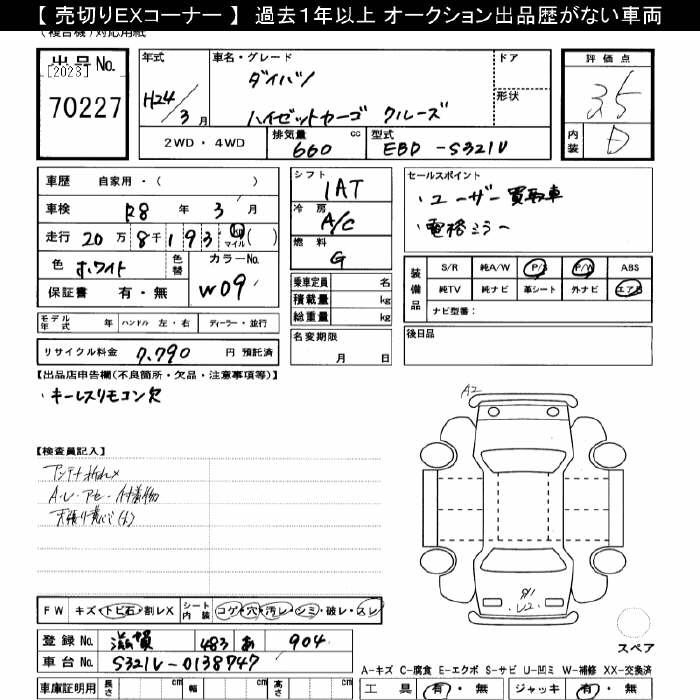 【 売切りEXコーナー 】 過去1年以上 オークション出品歴がない車両
(複合機)対応用紙
出品No.
[2023]
70227
年式
H24/3月
車名・グレード
ダイハツ
ハイゼットカーゴ クルーズ
ドア
形状
評価点
3.5
内装 D
2WD・4WD
排気量 660 cc
型式 EBD-S321V
車歴 自家用・( )
車検 R8 年 3 月
走行 20万8千193 km マイル ( )
色 ホワイト 色替 カラーNo. W09
保証書 有・無
シフト 1AT
冷房 A/C
燃料 G
乗車定員 名
積載量 kg
総重量 kg
名変期限 月 日
セールスポイント
・ユーザー買取車
・電格ミラー
装備品
S/R 純A/W P/S P/W ABS
純TV 純ナビ 革シート 外ナビ エアB
ナビ型番:
後日品
モデル年式 年 ハンドル 左・右 ディーラー・並行
リサイクル料金 7,790 円 預託済
【出品店申告欄(不良箇所・欠品・注意事項等)】
・キーレスリモコン欠
【検査員記入】
アンテナ折れ×
A・V・アセー付着物
A2
S1
U2
スペア
FW キズ・トビ石・割レX シート内装 コゲ・穴・汚レ・シミ・破レ・スレ
登録No. 滋賀 483 あ 904
車台No. S321V-0138747
A-キズ C-腐食 E-エクボ S-サビ U-凹ミ W-補修 XX-交換済
車庫証明用 長さ cm 幅 cm 高さ cm
工具 有・無 ジャッキ 有・無